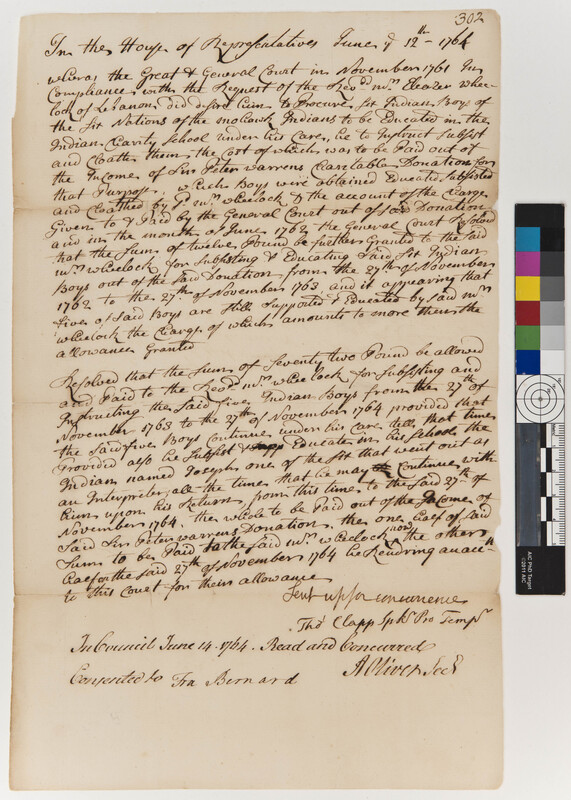 302
In the House of Representatives June ye 12th - 1764
whereas the Great & General Court in November 1761 In
Compliance with the Request of the Revd mr. Eleazer Whee-
lock of Lebanon did desire him to Procure Six Indian Boys of
the Six Nations of the mohawk Indians to be Educated in the
Indian Charity School under his Care, he to Instruct Subsist
and Cloath them the Cost of which was to be Paid out of
the Income of Sir Peter warrens Charitable Donation for
that Purpose, which Boys were obtained Educated Subsisted
and Cloathed by sd mr. wheelock & the account of the Charge
Given to & Paid by the General Court out of sd Donation
and in the month of June 1762 the General Court Resolved
that the Sum of twelve Pound be further Granted to the said
mr. wheelock for Subsisting & Educating Said Six Indian
Boys out of the Said Donation from the 27th of November
1762 to the 27th of November 1763 and it appearing that
five of said Boys are Still Supported & Educated by Said mr.
wheelock the Charge of which amounts to more then the
allowance Granted
Resolved that the Sum of Seventy two Pound be allowed
and Paid to the Revd mr. wheelock for Subsisting and
Instructing the Said five Indian Boys from the 27th of
November 1763 to the 27th of November 1764 provided that
the Said five Boys Continue under his Care till that time
Provided also he Subsist & Educate in his School the
Indian named Joseph one of the Six that went out as
an Interpreter, all the time that he may Continue with
him upon his Return from this time to the Said 27th of
November 1764, the whole to be Paid out of the Income of
Said Sir Peter warrens Donation, the one half of Said
Sum to be Paid to the Said mr. wheelock now, the other
half on the Said 27th of November 1764 he Rendring an acct
to this Court for their allowance
Sent up for concurrence
Thos Clapp Spkr Pro Tempr
In Council June 14. 1764. Read and Concurred
A Oliver Secr
Consented to Fra Bernard